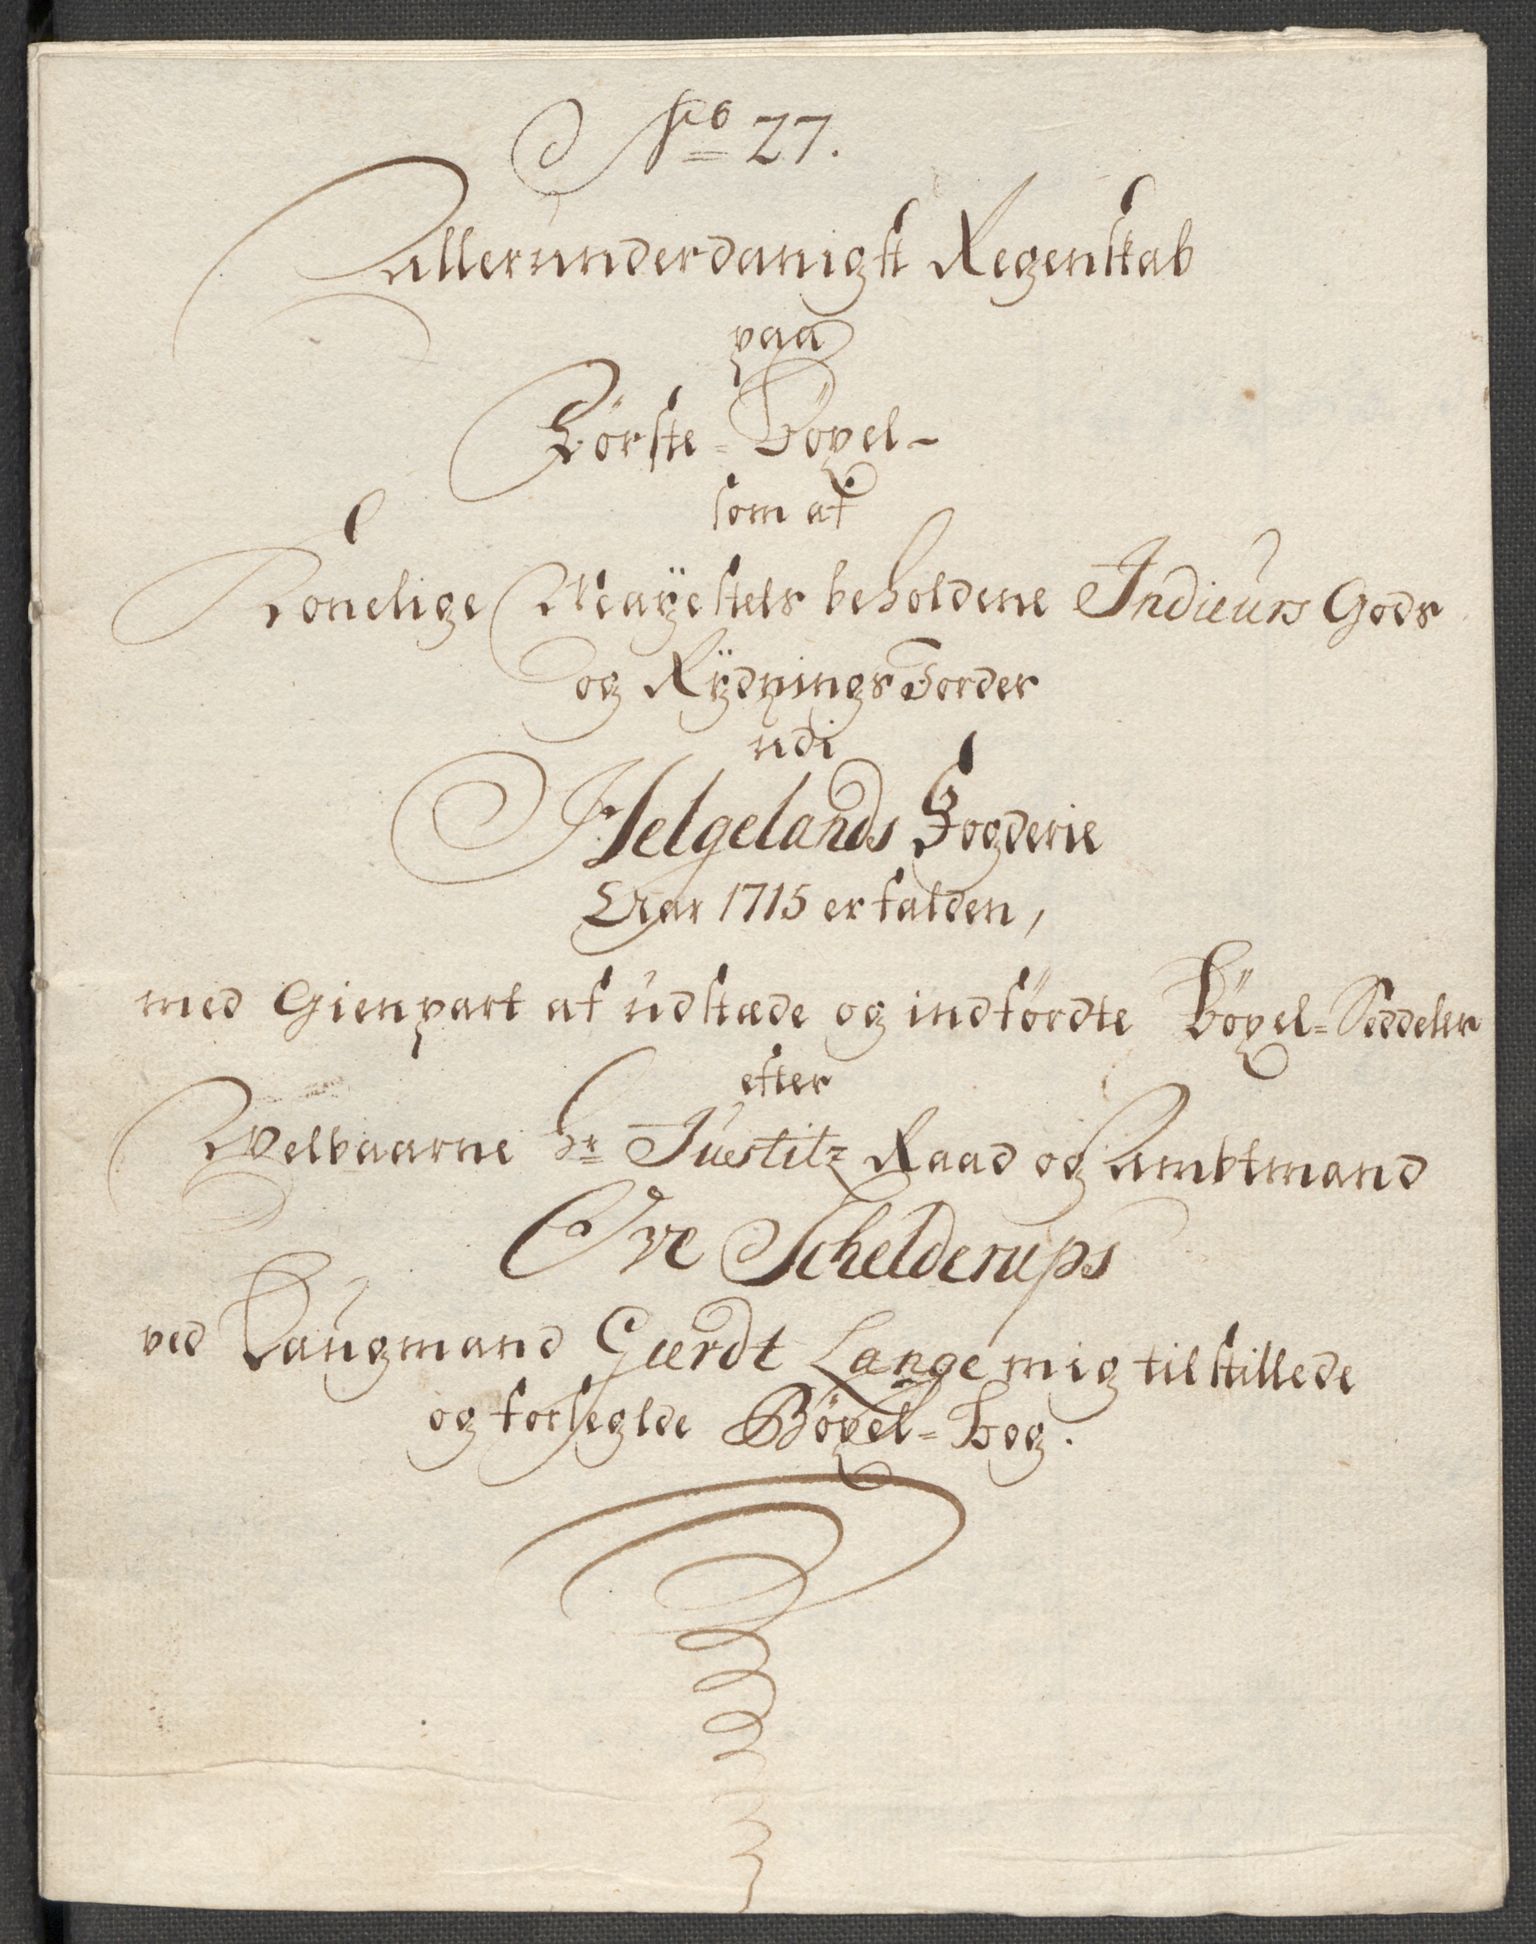 No 27.
Allerunderdanigst Regenskab
paa
Förste-Böxel-
som af
Konelige Mayestets beholdene Indieurs Gods
og Rydnings Jorder
udi
Helgelands Fogderie
Aar 1715 er falden,
med Gienpart af udstæde og indförte Böxel-Seddeler
efter
Welbaarne Hr Justitz Raad og Ambtmand
Ove Schelderups
ved Laugmand Gierdt Lange mig tilstillede
og forseglde Böxel-Bog.